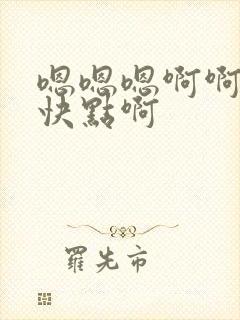 嗯嗯嗯啊啊
快點啊
羅先市